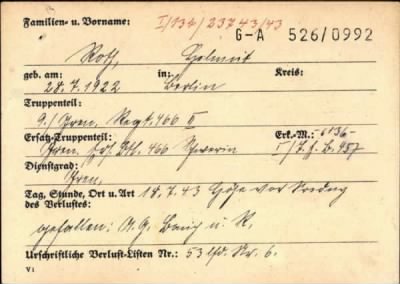 Familien- u. Vorname: I/134/23743/43
G-A 526/0992
Roth, Helmut
geb. am: in: Kreis:
28.7.1922 Berlin
Truppenteil:
9./Gren. Regt. 466
Ersatz-Truppenteil: Erk.-M.: -6136-
Gren. Ers. Btl. 466 Schwerin
Dienstgrad:
Gren.
Tag, Stunde, Ort u. Art 18.7.43 Höhe vor
des Verlustes:
gefallen: A.G. u. K.
Urschriftliche Verlust-Listen Nr.: 53 lfd. Nr. 6.
V1